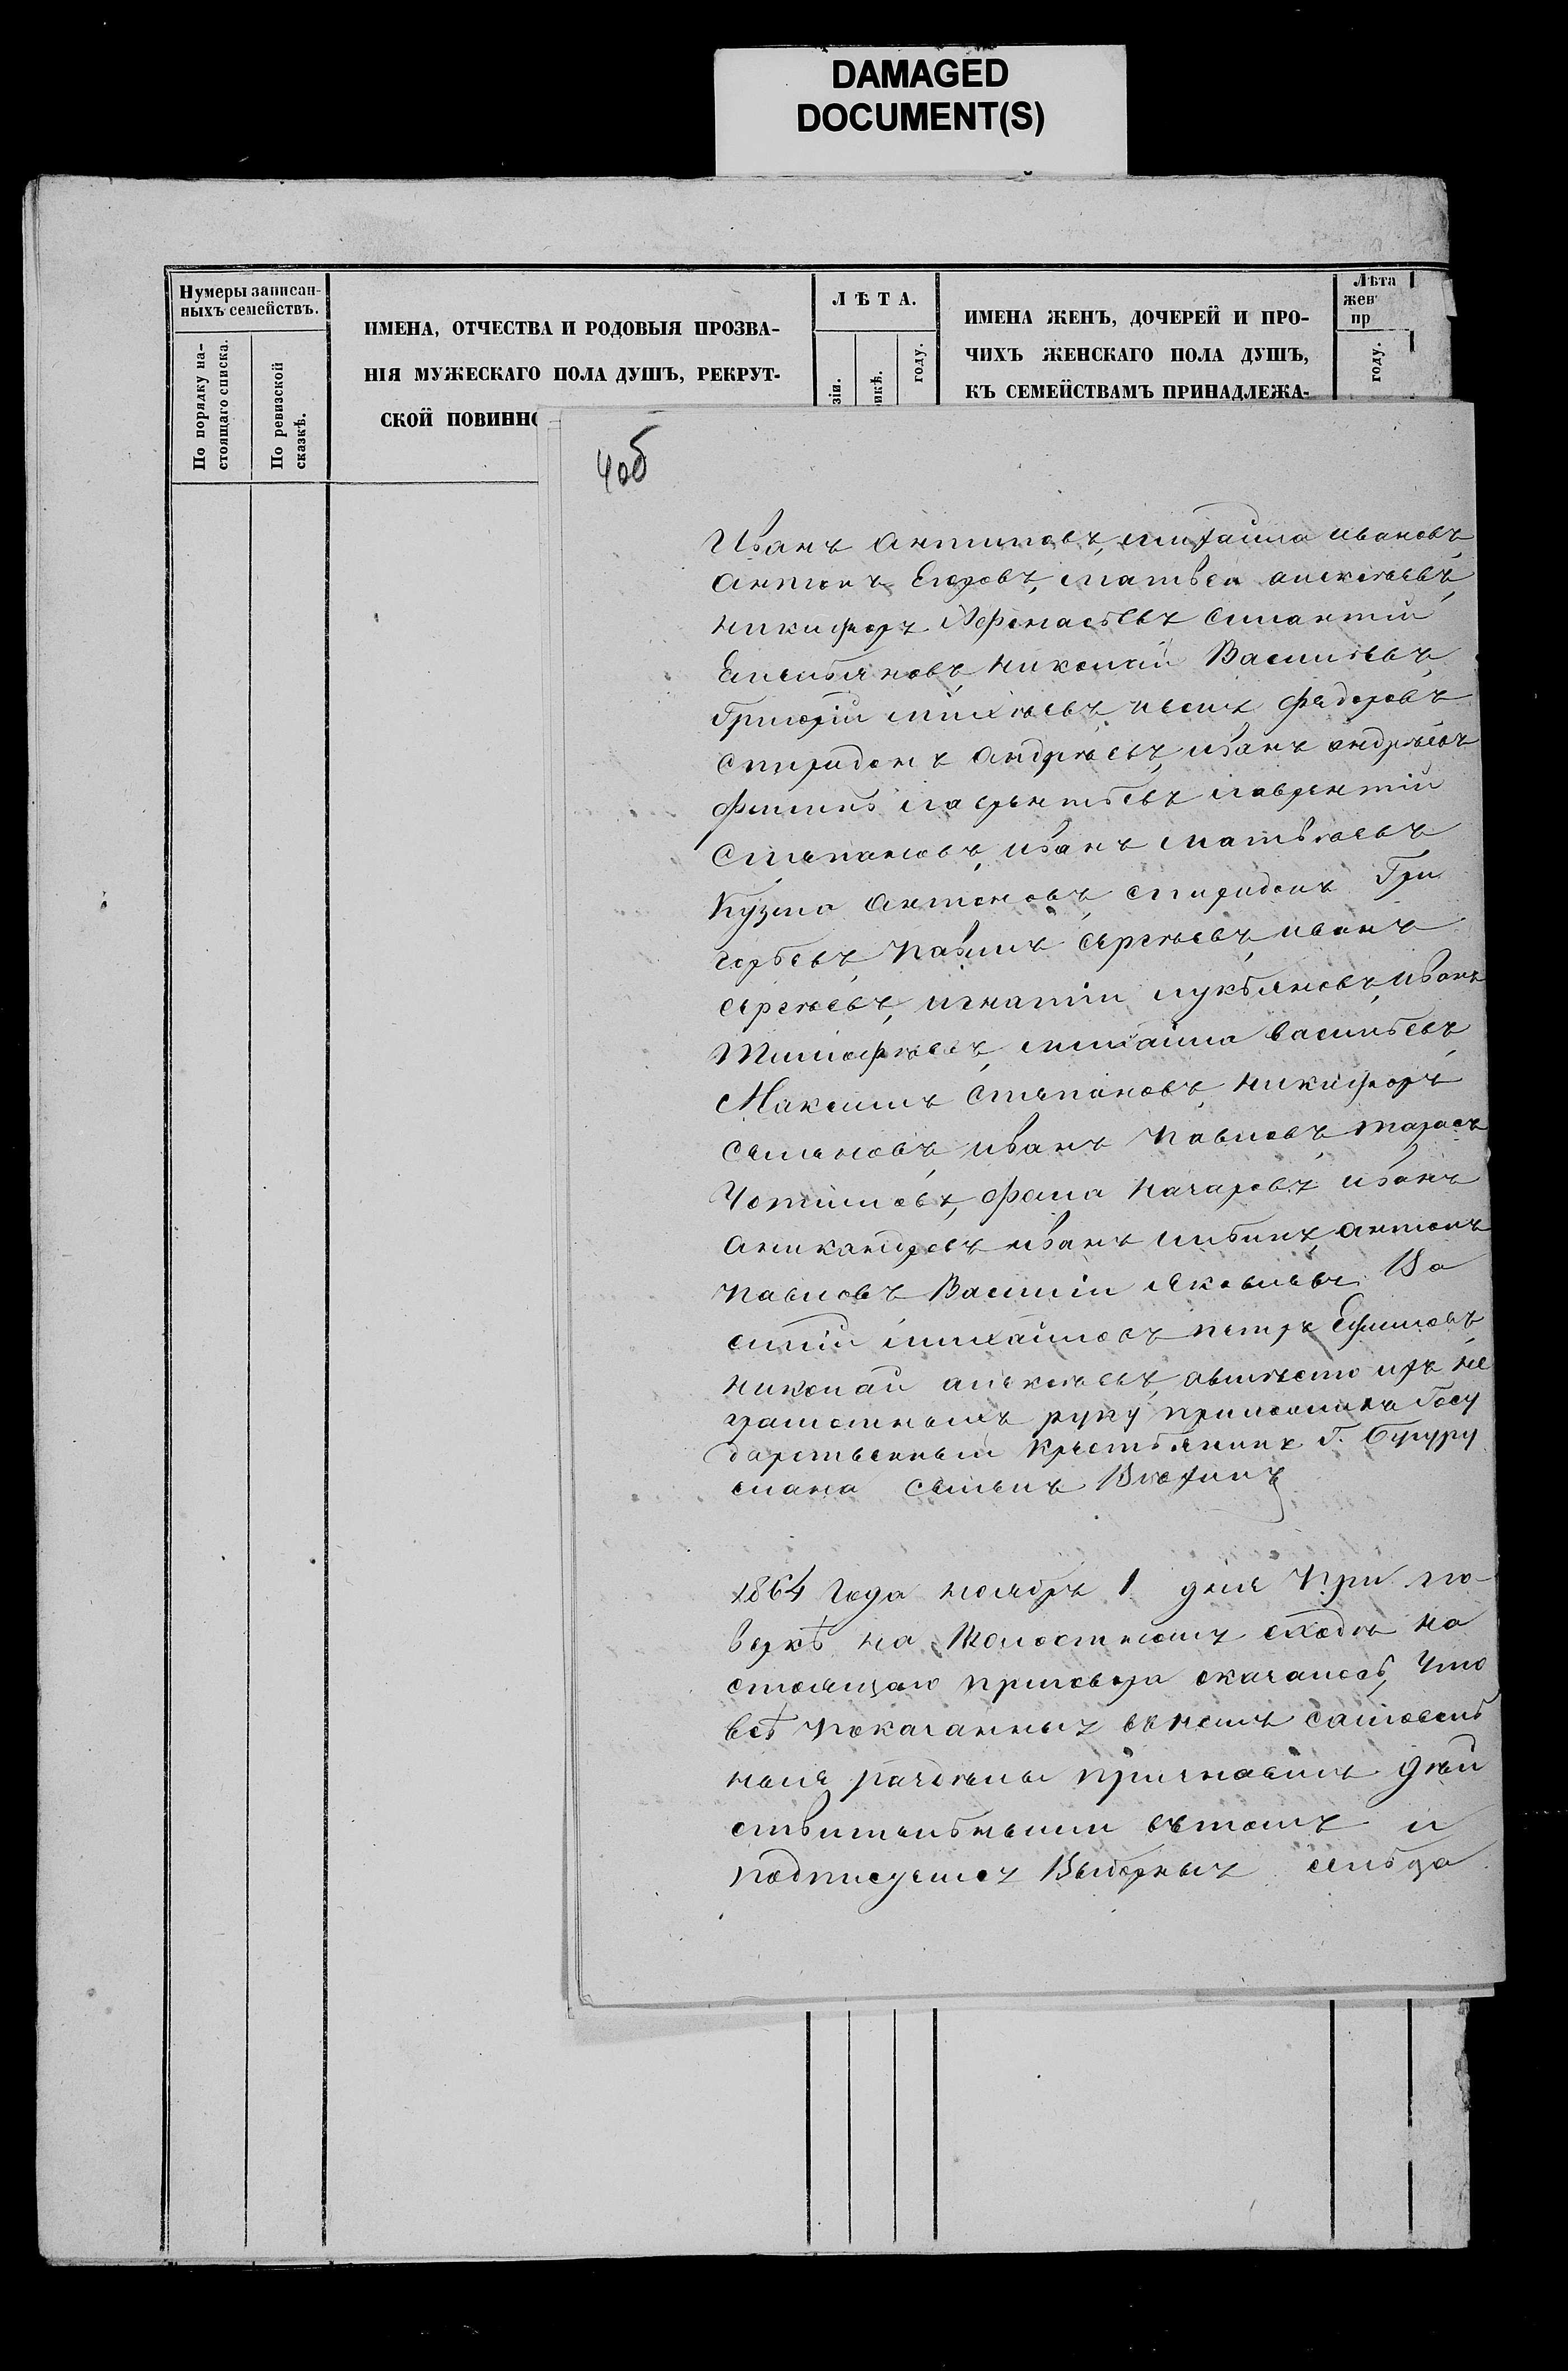 DAMAGED
DOCUMENT(S)
Нумеры записан-
ныхъ семействъ.
По порядку на-
стоящаго списка.
По ревизской
сказкѣ.
ИМЕНА, ОТЧЕСТВА И РОДОВЫЯ ПРОЗВА-
НІЯ МУЖЕСКАГО ПОЛА ДУШЪ, РЕКРУТ-
СКОЙ ПОВИНН
ЛѢТА.
зіи.
икѣ.
году.
ИМЕНА ЖЕНЪ, ДОЧЕРЕЙ И ПРО-
ЧИХЪ ЖЕНСКАГО ПОЛА ДУШЪ,
КЪ СЕМЕЙСТВАМЪ ПРИНАДЛЕЖА-
Лѣта
жен
пр
году.
Иванъ Антиповъ, михайла ивановъ,
Антонъ Егоровъ, матвей алексѣевъ,
никифоръ Афонасьевъ
Емельяновъ, николай Васильевъ,
Григорій михѣевъ Федоровъ
Спиридонъ Андрѣевъ, иванъ андрѣевъ
Филипъ лаврентьевъ лаврентій
Степановъ, иванъ матвѣевъ
Кузма антоновъ, спиридонъ Гри
горьевъ, павилъ сергѣевъ, иванъ
сергѣевъ, игнатіи лукьяновъ, иванъ
Тимофѣевъ, михайла васильевъ
Максимъ Степановъ, никифоръ
семеновъ, иванъ павловъ тарасъ
фома назаровъ иванъ
аникандровъ иванъ антонъ
павловъ Василіи яковлевъ Ва
силіи михайловъ петръ Ефимовъ
николай алексѣевъ, авмѣсто ихъ не
грамотныхъ руку приложилъ Госу
дарственный крестьянинъ Г. Бугуру
слана семенъ
1864 года ноябръ 1 дня При по-
веркѣ на Волостномъ сходѣ на
стоящаго приговора оказалось, что
всѣ показанныхъ внемъ самоволь
ныя раздѣлы призноемъ дѣй
ствительными вътомъ и
подписуемсъ Выборныхъ сельца